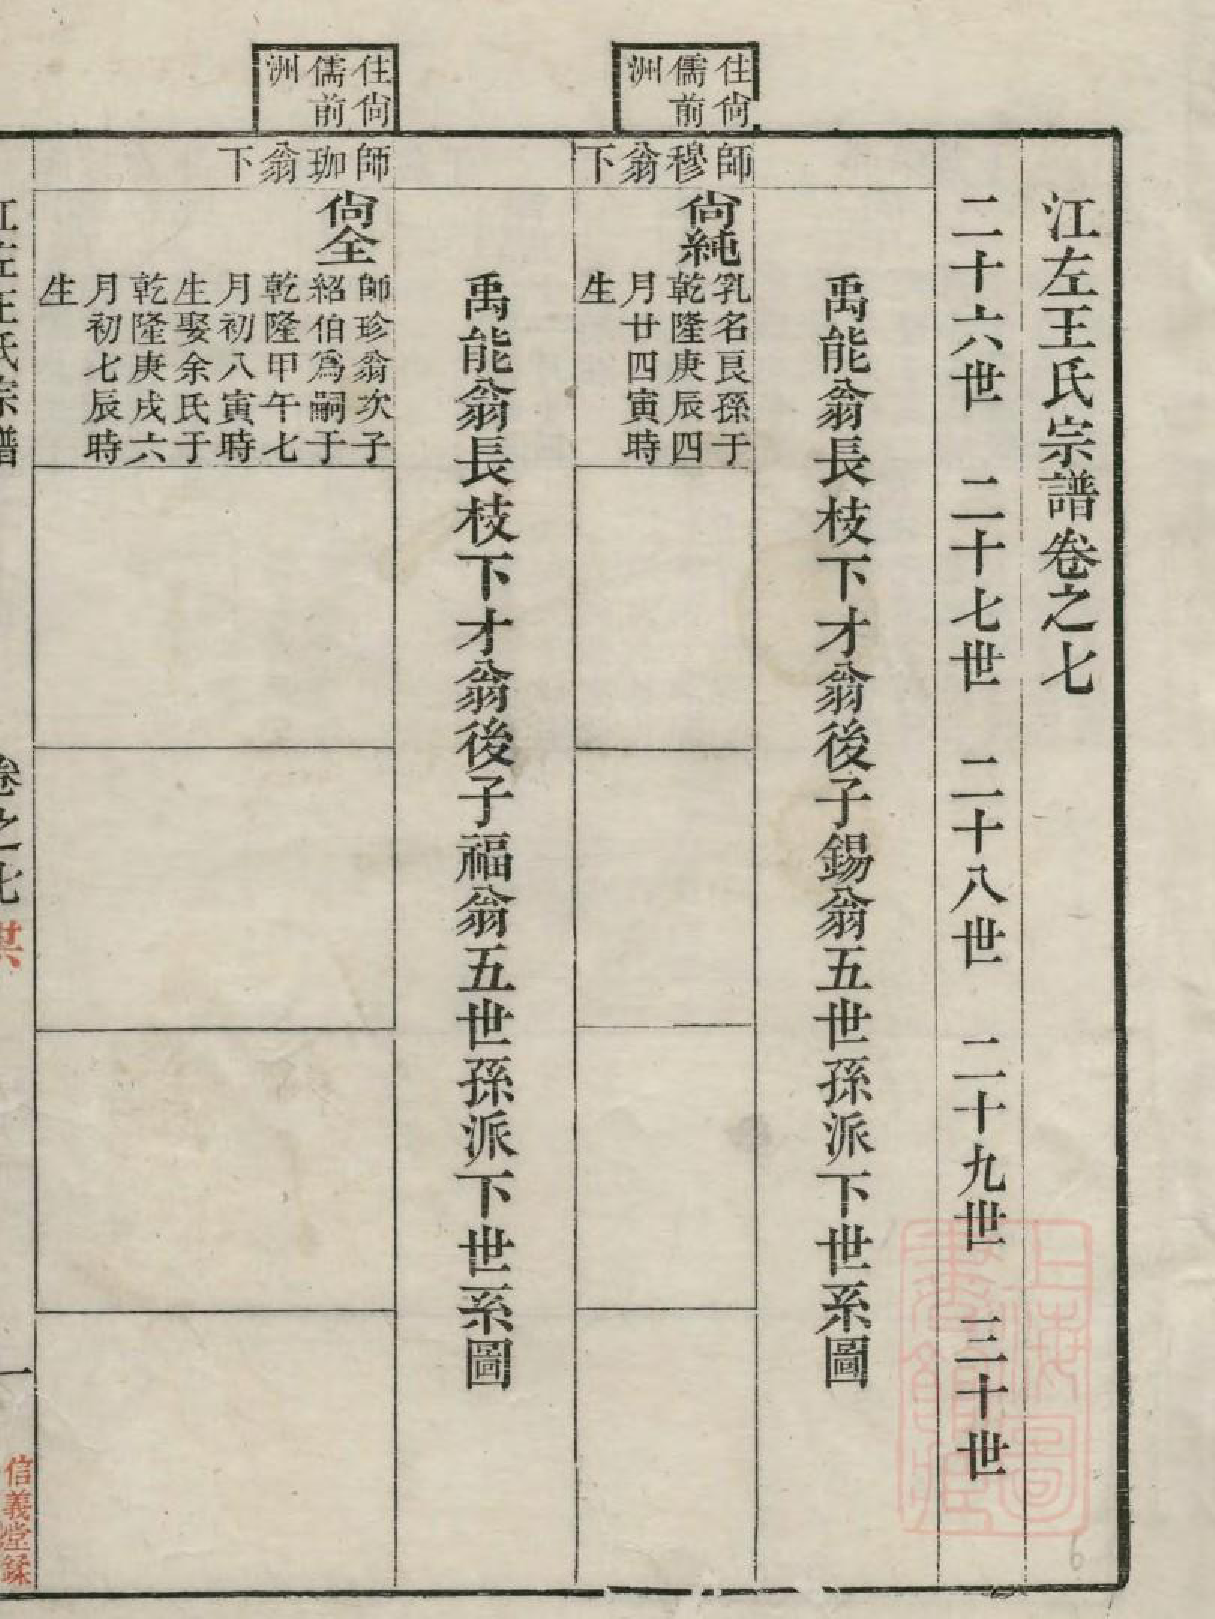 江左王氏宗譜卷之七
二十六世　二十七世　二十八世　二十九世　三十世
禹能翁長枝下才翁後子錫翁五世孫派下世系圖
住尙
儒前
洲
師
穆
翁
下
尙純
乳名良孫于
乾隆庚辰四
月廿四寅時
生
禹能翁長枝下才翁後子福翁五世孫派下世系圖
住尙
儒前
洲
師
珈
翁
下
尙全
師珍翁次子
紹伯爲嗣于
乾隆甲午七
月初八寅時
生娶余氏于
乾隆庚戌六
月初七辰時
生
江左王氏宗譜
卷之七
一
信義堂鍒